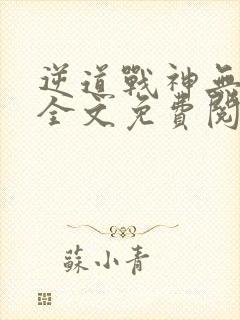 逆道戰神無
全文免費閱
蘇小青